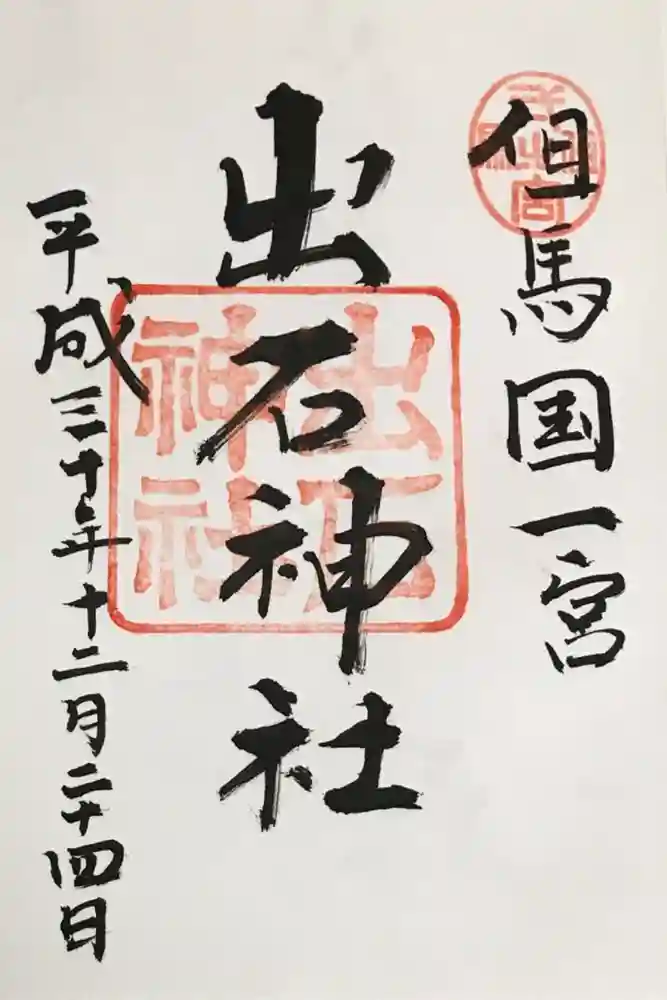 但馬国一宮
出石神社
出石神社
平成三十年十二月二十四日